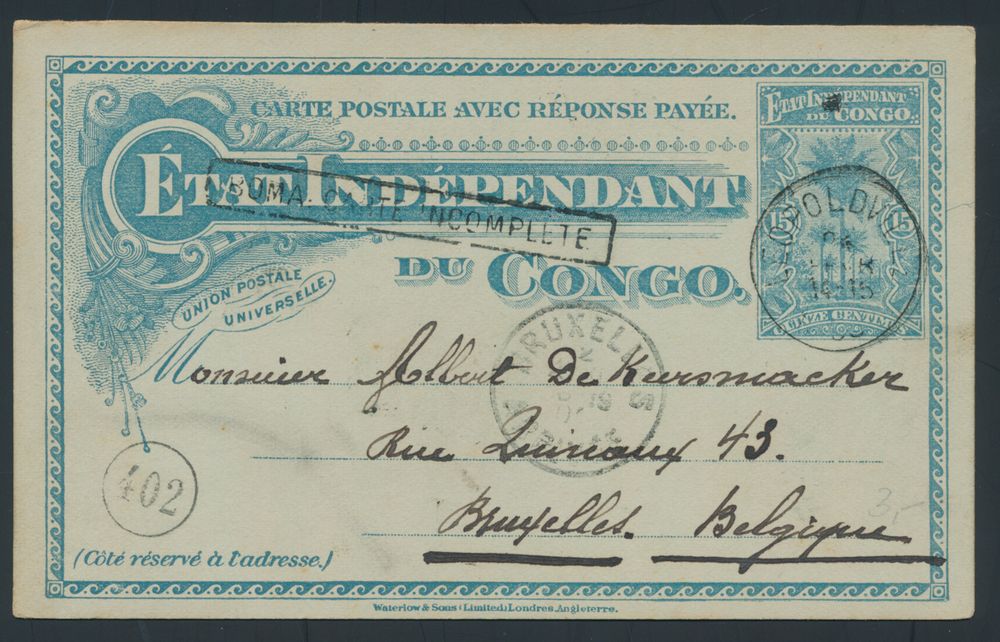 CARTE POSTALE AVEC RÉPONSE PAYÉE.
ÉTAT INDÉPENDANT
DU CONGO.
ETAT INDEPENDANT
DU CONGO.
15 15
QUINZE CENTIMES
BOMA. CARTE INCOMPLETE
UNION POSTALE
UNIVERSELLE.
LEOPOLDVILLE
14-15
BRUXELLES
Monsieur Albert De Keersmacker
Rue Quinaux 43.
Bruxelles. Belgique
402
3,-
(Côté réservé à l'adresse.)
Waterlow & Sons (Limited) Londres, Angleterre.